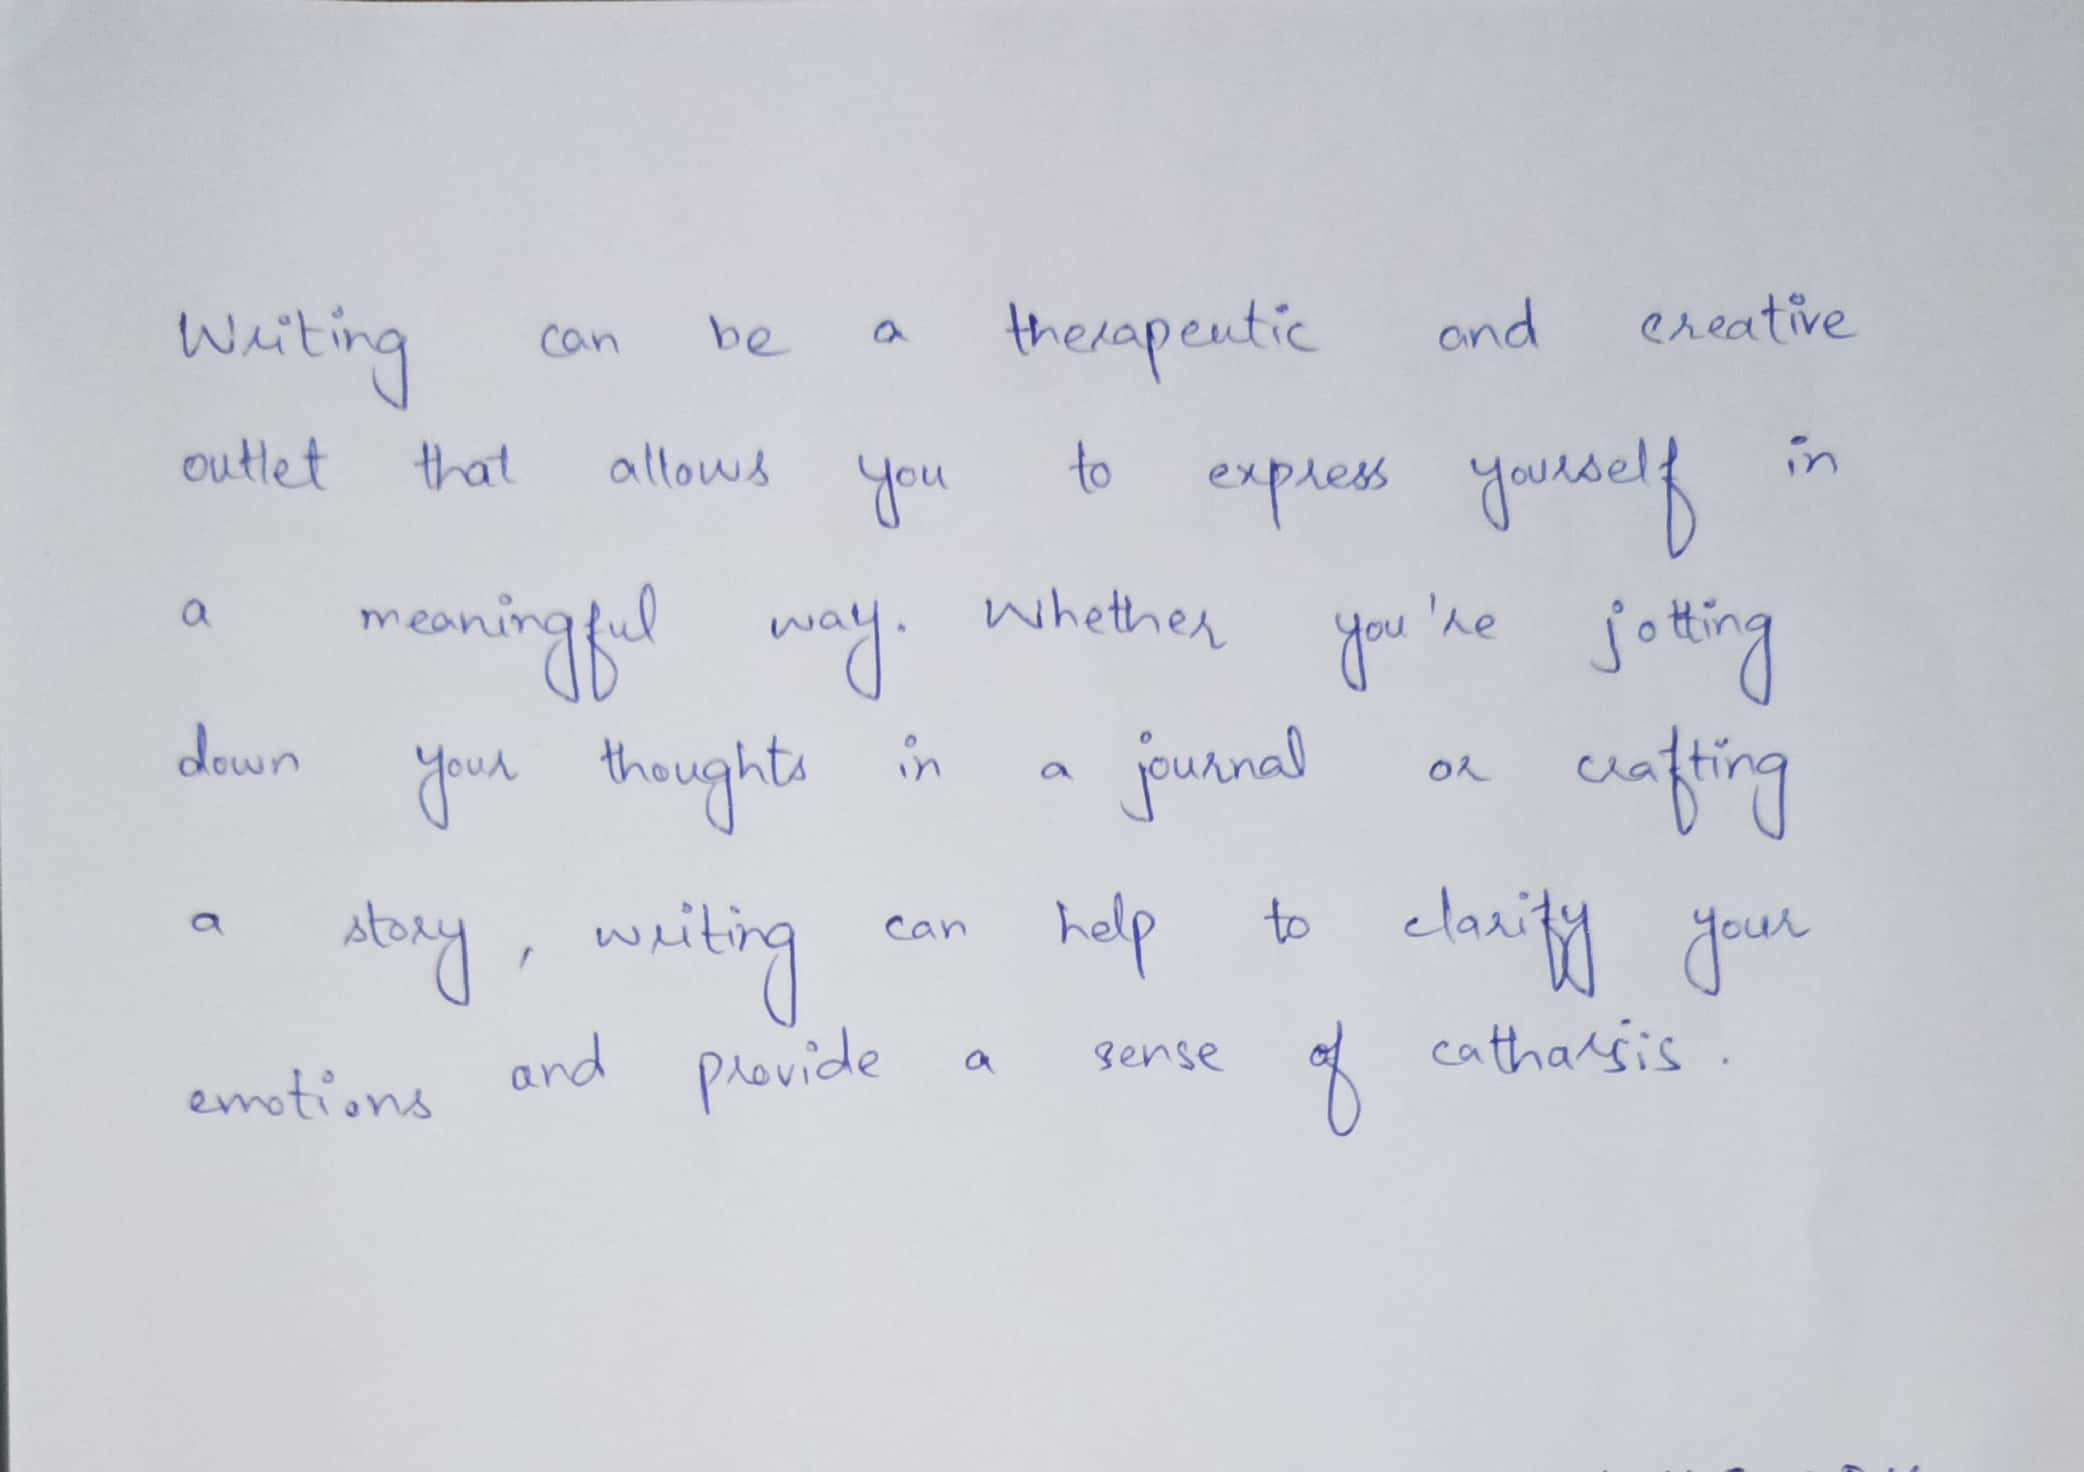 Writing can be a therapeutic and creative
outlet that allows you to express yourself in
a meaningful way. Whether you're jotting
down your thoughts in a journal or crafting
a story, writing can help to clarify your
emotions and provide a sense of catharsis.